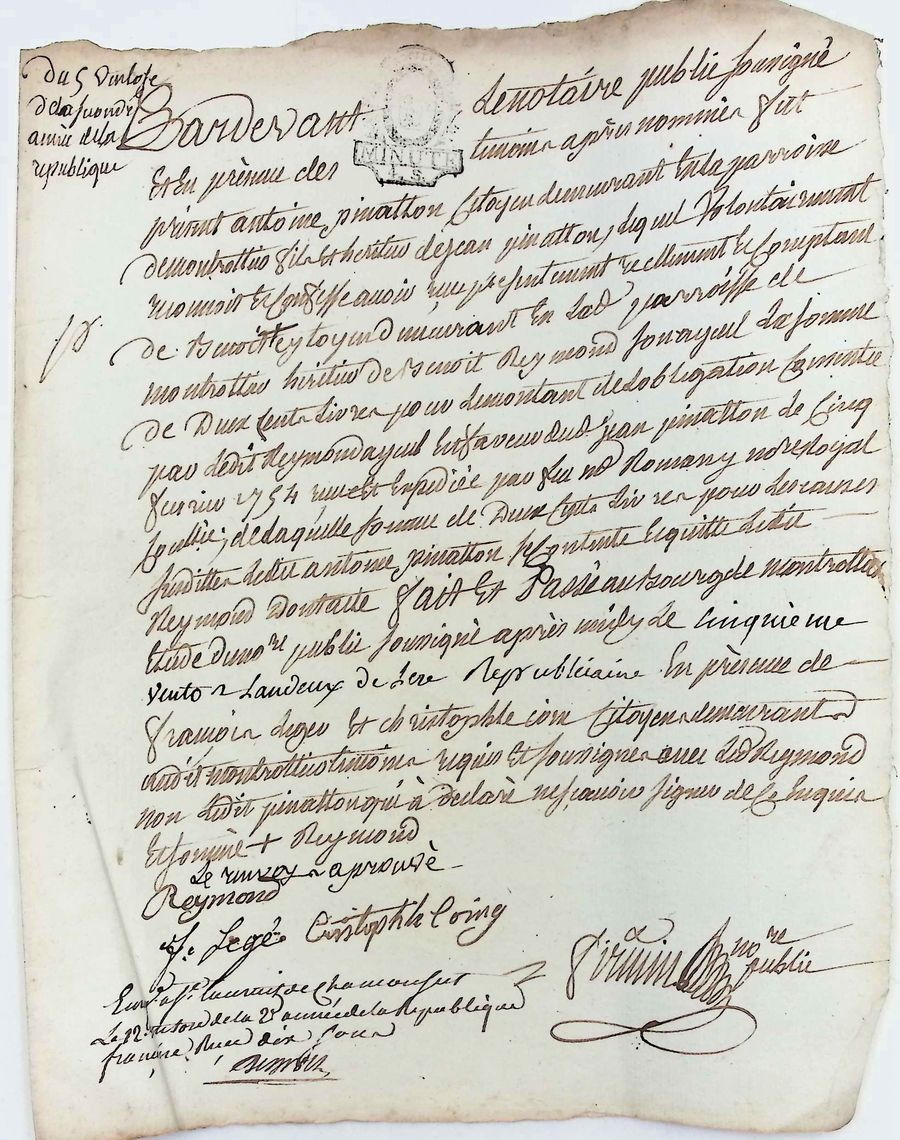 Du 5 Vintose
de la seconde
année de la
republique
Pardevant le notaire public sousigné
MINUTE
4. S.
Et En présence des temoins après nommés fut
présent antoine pinatton Citoyen demeurant En la parroisse
de montrottier fils et heritier de jean pinatton, lequel Volontairement
reconnoit Et Confesse avoir reçu présentement reellement Et Comptant
de Benoit Citoyen demeurant En lad parroisse de
montrottier héritier de Benoit Reymond son ayeul La somme
de Deux Cents Livres pour le montant de Lobligation Consentie
par ledit Reymond ayeul En faveur dud jean pinatton le Cinq
fevrier 1754 reçue Et Expediée par feu me Romany notre Royal
de laquelle somme de Deux Cents Livres pour les causes
susdittes ledit antoine pinatton se Contente Et quitte ledit
Reymond Dont acte fait Et Passé au Bourg de montrottier
Etude du nore public sousigné après midy le cinquieme
ventos Landeux de Lere Republicaine En présence de
françois leger Et christophle coin Citoyens demeurant
audit montrottier temoins requis Et sousignes avec led Reymond
non ledit pinatton qui à Declaré ne scavoir signer de Ce Enquis
Et sommé + Reymond
Le renvoy aprouvé
Reymond
fs Legé Cristophle Coing
nore
public
Enregé a st laurent de Chamousset
Le 12 ventose de la 2e année de la Republique
française Reçu dix sous